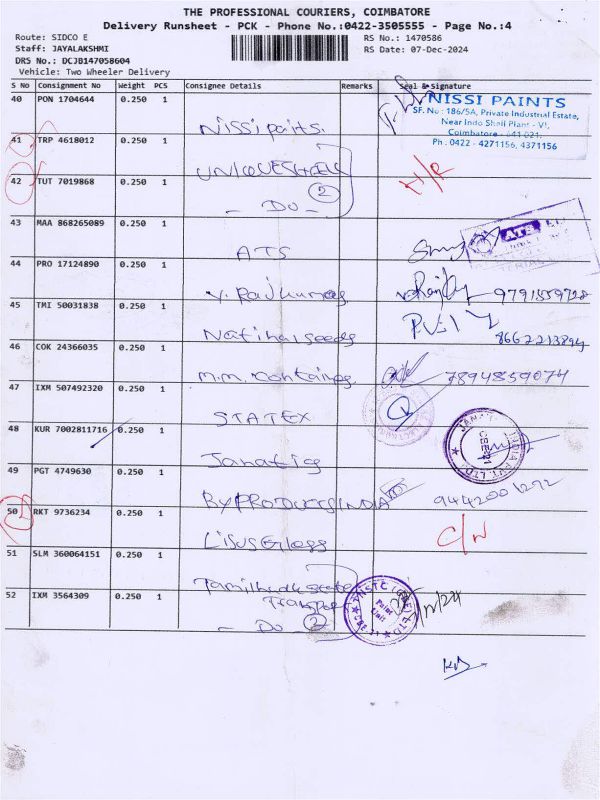 THE PROFESSIONAL COURIERS, COIMBATORE
Delivery Runsheet - PCK - Phone No.:0422-3505555 - Page No.:4
Route: SIDCO E
RS No.: 1470586
Staff: JAYALAKSHMI
RS Date: 07-Dec-2024
DRS No.: DCJB147058604
Vehicle: Two Wheeler Delivery
S No Consignment No Weight PCS Consignee Details Remarks Seal & Signature
40 PON 1704644 0.250 1 Nissi paits.
NISSI PAINTS
SF. No : 186/5A, Private Industrial Estate,
Near Indo Shell Plant - VI,
Coimbatore - 641 021.
Ph : 0422 - 4271156, 4371156
41 TRP 4618012 0.250 1
42 TUT 7019868 0.250 1 - Do - 2
43 MAA 868265089 0.250 1 ATS
ATS
44 PRO 17124890 0.250 1 V. Rajkumar 9791559728
45 TMI 50031838 0.250 1 National seeds 8667213894
46 COK 24366035 0.250 1 M.M. Containes 7894859074
47 IXM 507492320 0.250 1 STATEX
48 KUR 7002811716 0.250 1 Janatics
INDIA PVT. LTD.
49 PGT 4749630 0.250 1 BY PRODUCTS INDIA 9442001272
50 RKT 9736234 0.250 1 C/N
51 SLM 360064151 0.250 1 Tamilnadu state
Transpor
52 IXM 3564309 0.250 1 - Do - 2